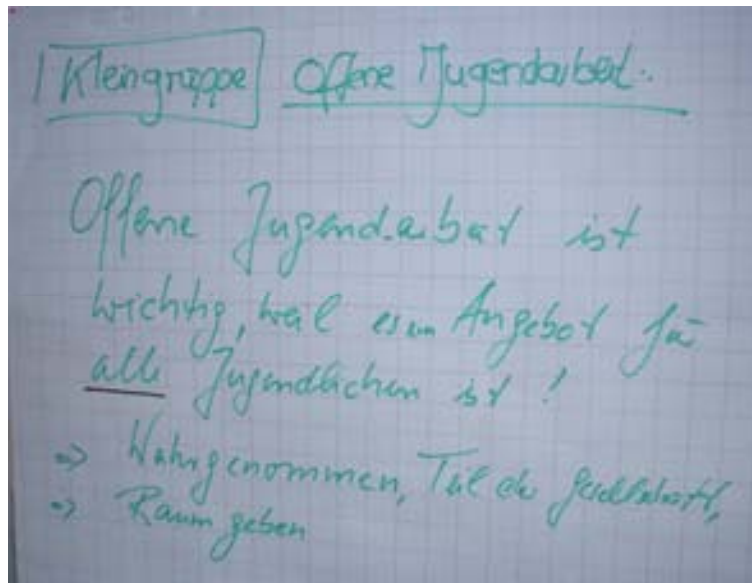 Kleingruppe Offene Jugendarbeit.
Offene Jugendarbeit ist
wichtig, weil es ein Angebot für
alle Jugendlichen ist!
=> Wahrgenommen, Teil der Gesellschaft,
=> Raum geben